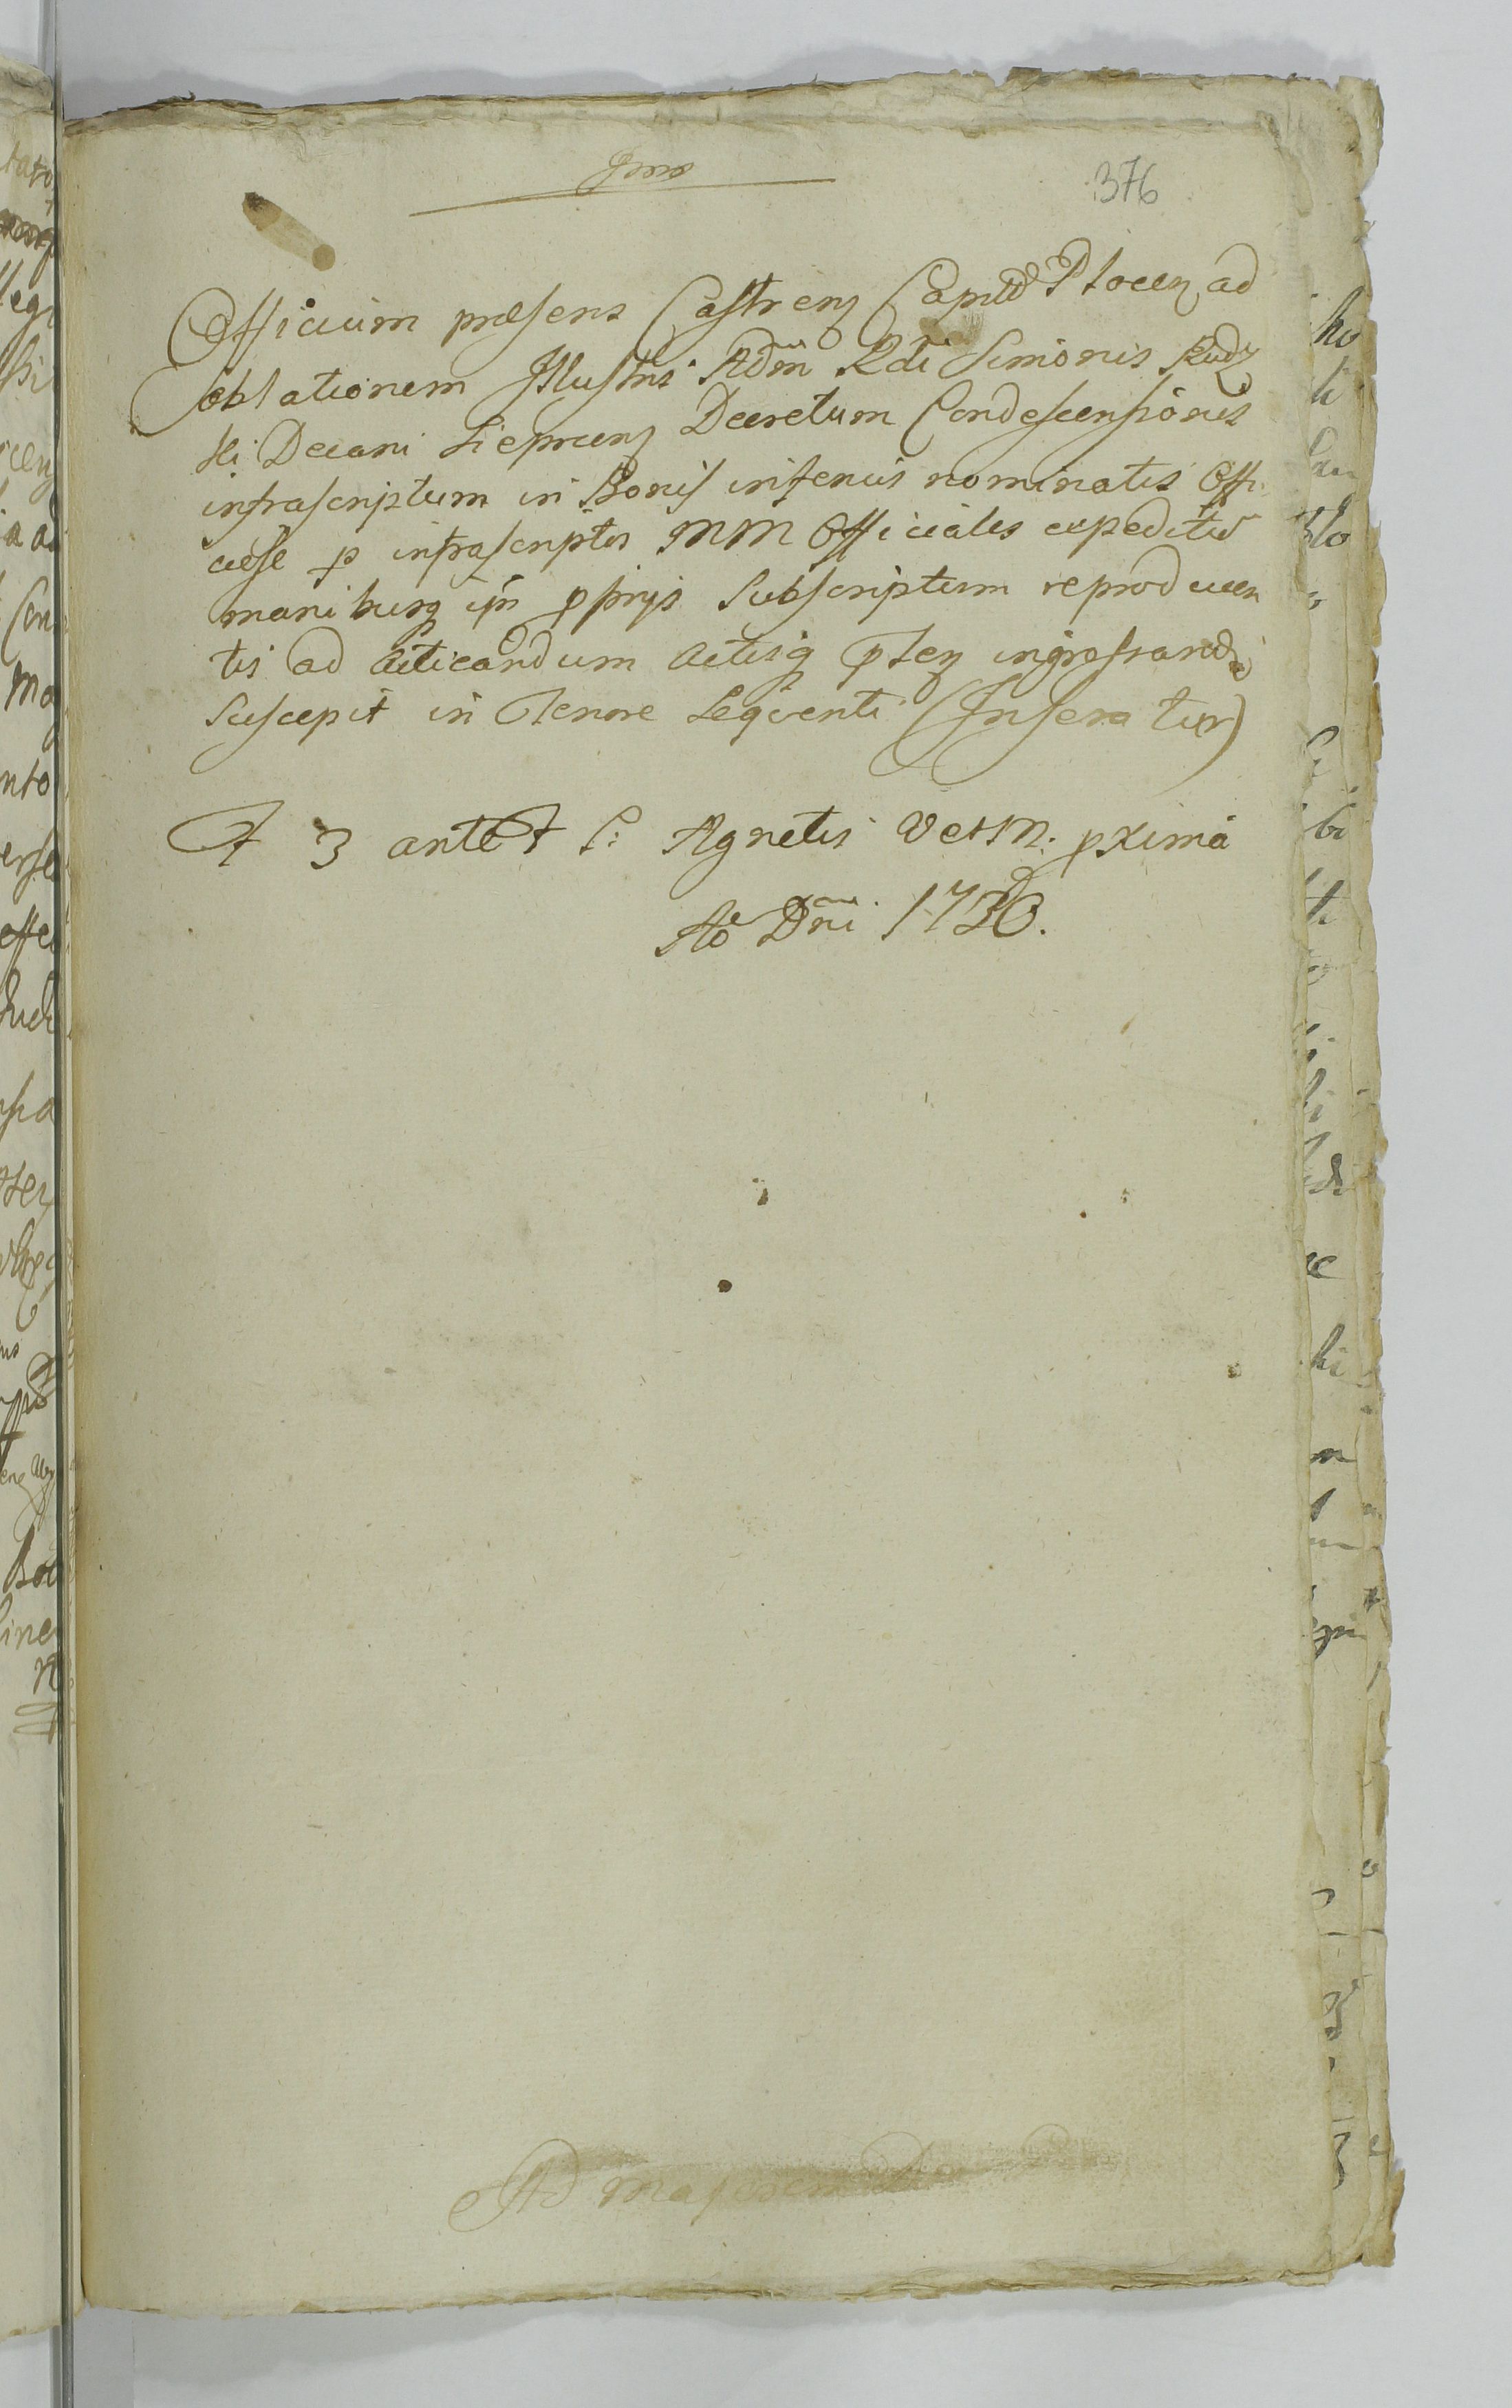 376
Officium præsens Castren Capitle Plocen ad
oblationem Illustris Adm Rdi Simonis Rudz
ki Decani Sieprcen Decretum Condescensionis
infrascriptum in Bonis inferius nominatis Offi
ciose p infrascriptos MM Officiales expeditu
manibusq ipn ppriys Subscriptum reproducen
tis ad acticandum actisq pten ingrossand
Suscepit in Tenore Sequenti (Inseratur)
F 3 ante F S: Agnetis V et M. pxima
Ao Dni 1730.
Ad majorem